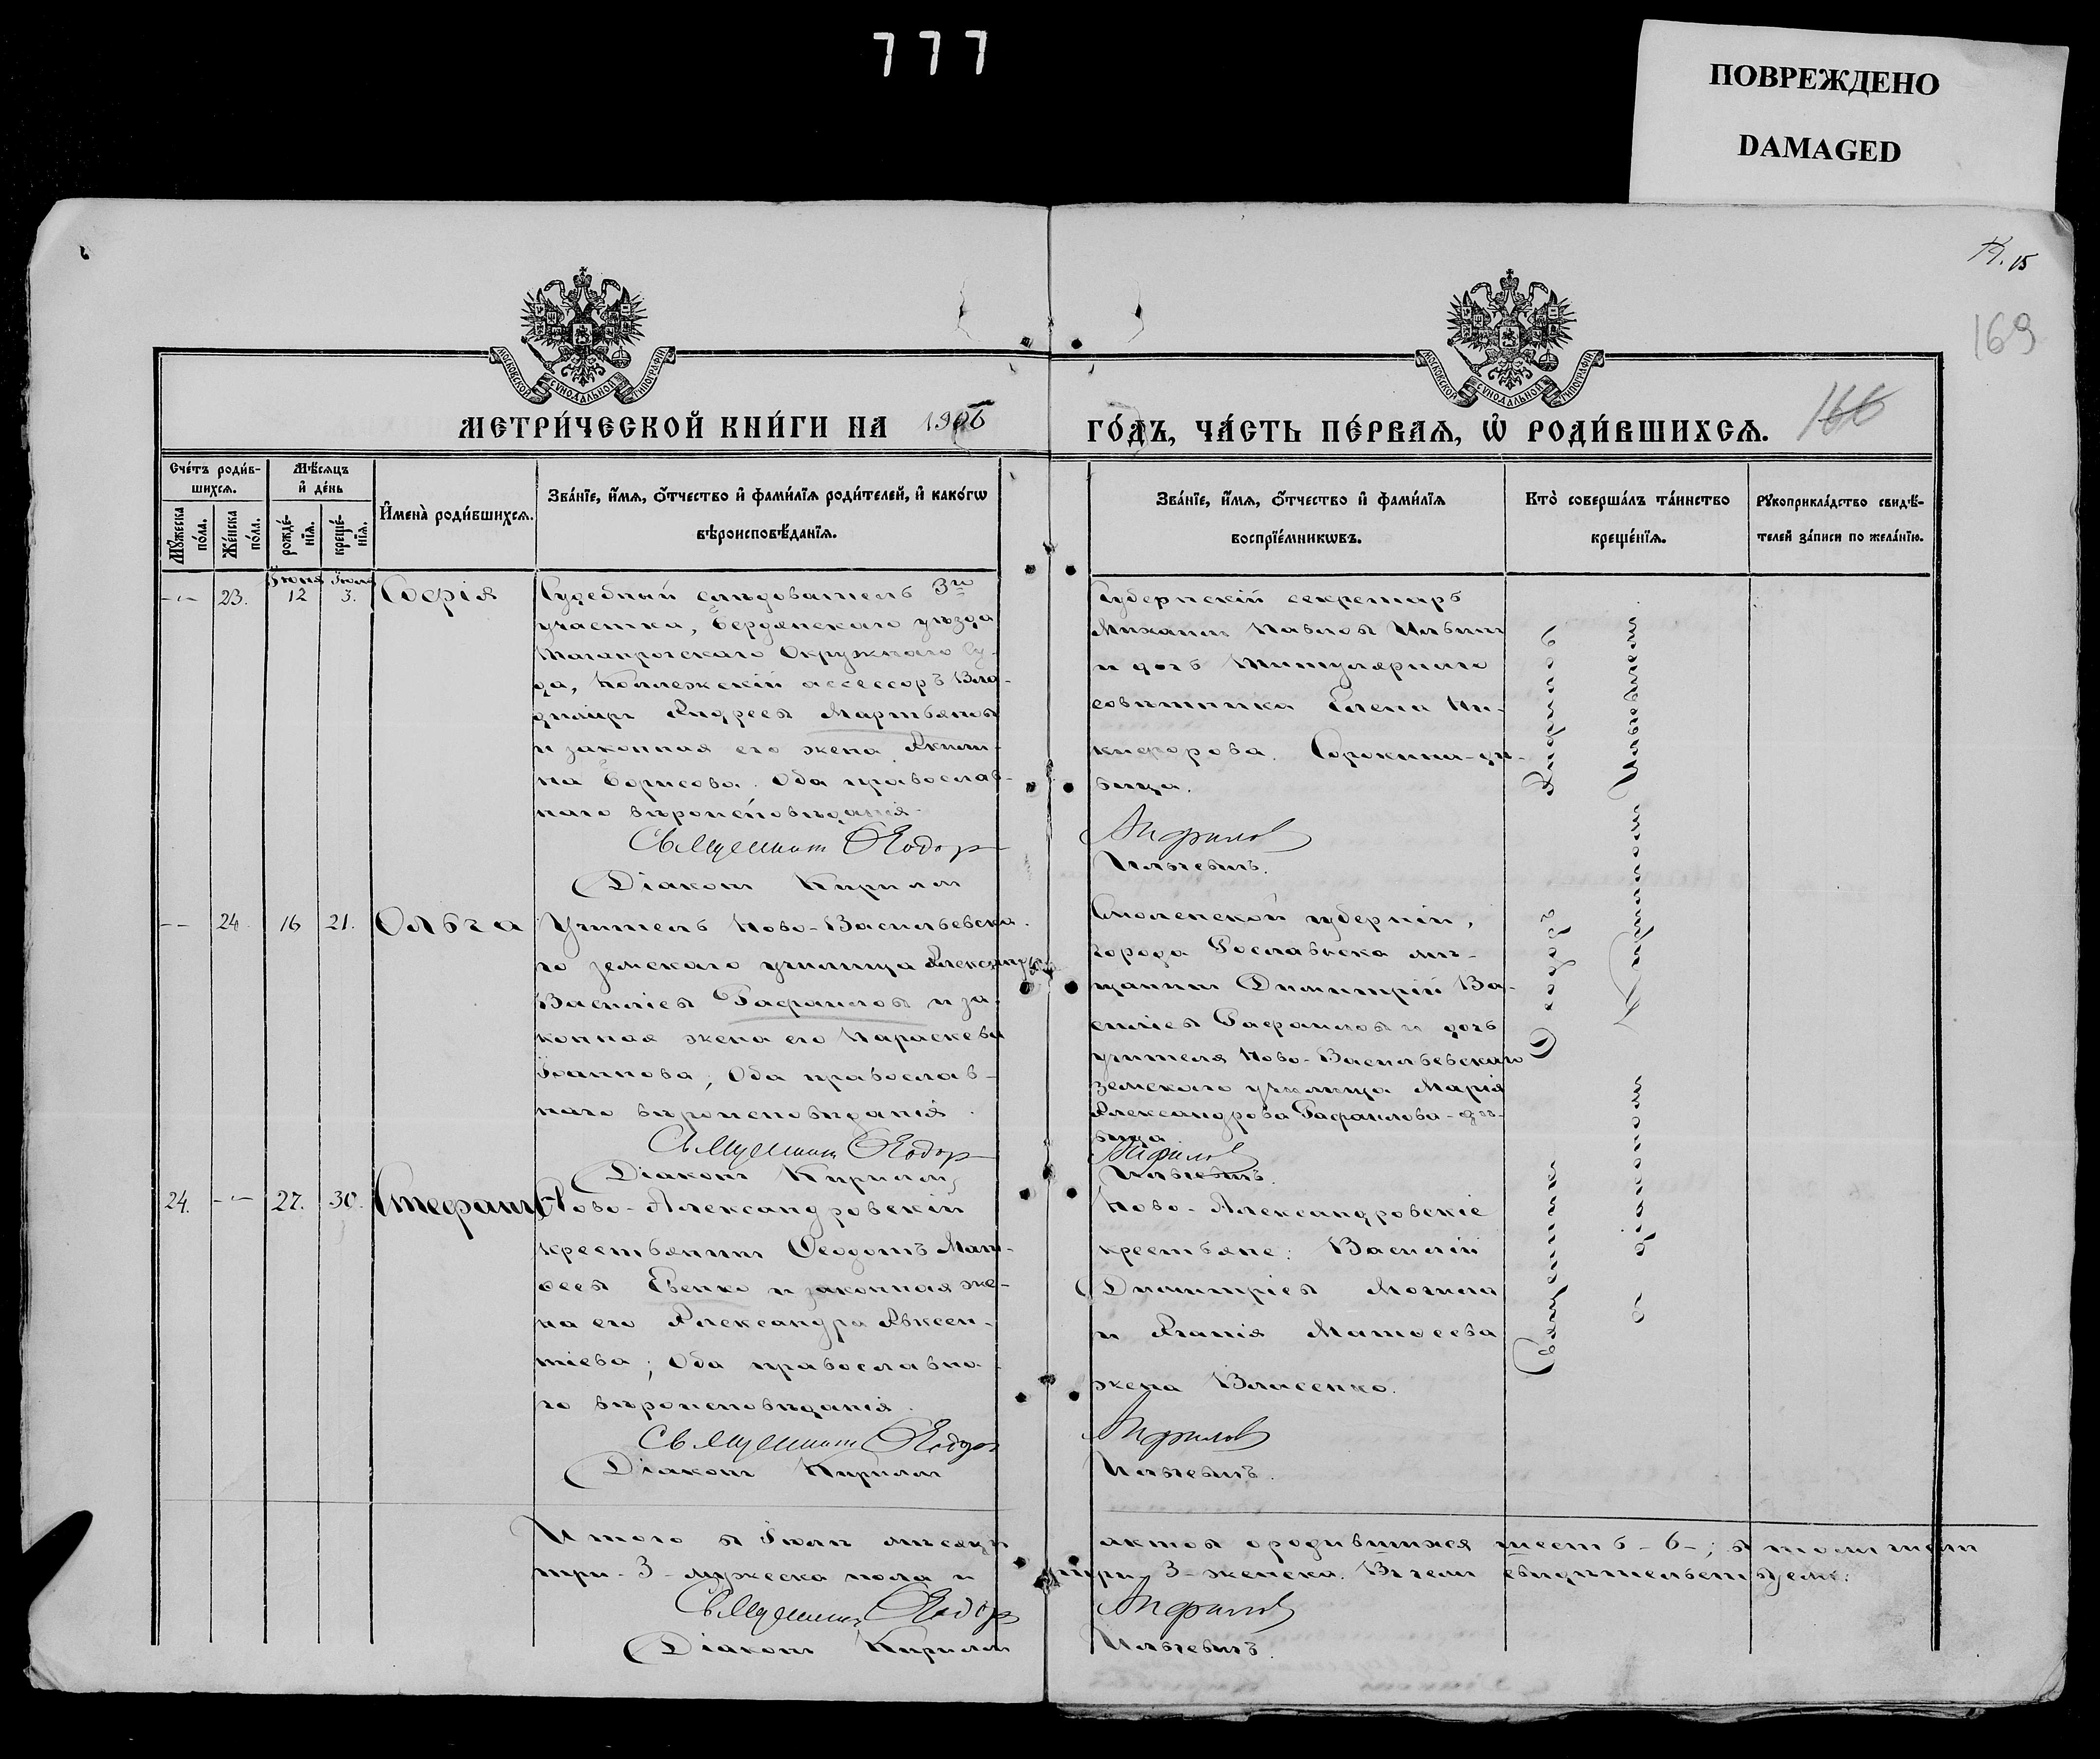 777
ПОВРЕЖДЕНО
DAMAGED
15
169
166
МОСКОВСКОЙ СѴНОДАЛЬНОЙ ТИПОГРАФІИ
МОСКОВСКОЙ СѴНОДАЛЬНОЙ ТИПОГРАФІИ
МЕТРИ́ЧЕСКОЙ КНИ́ГИ НА 1906 ГО́ДЪ, ЧА́СТЬ ПЕ́РВАѦ, Ѡ҆ РОДИ́ВШИХСѦ.
Сче́тъ роди́в-
шихсѧ.
Мѣ́сѧцъ
и҆ де́нь
Мꙋ́жеска
по́ла.
Же́нска
по́ла.
рожде́-
нїѧ.
креще́-
нїѧ.
И҆мена̀ роди́вшихсѧ.
Зва́нїе, и҆́мѧ, ѻ҆́тчество и҆ фами́лїѧ роди́телей, и҆ како́гѡ
вѣроисповѣ́данїѧ.
Зва́нїе, и҆́мѧ, ѻ҆́тчество и҆ фами́лїѧ
воспрїе́мникѡвъ.
Кто̀ соверша́лъ та́инство
креще́нїѧ.
Рꙋкоприкла́дство свидѣ́-
телей за́писи по жела́нїю.
23. Іюня 12 Іюля 3. Софія
Судебный слѣдователь 3го
участка, Бердянскаго уѣзда
Таганрогскаго Окружнаго Су-
да, Коллежскій ассессоръ Вла-
диміръ Андреевъ Мартьяновъ
и законная его жена Акили-
на Борисова. Оба православ-
наго вѣроисповѣданія.
Священникъ Ѳеодоръ
Діаконъ Кириллъ
Губернскій секретарь
Михаилъ Павловъ Ильинъ
и дочь Титулярнаго
совѣтника Елена Ни-
кифорова Сорокина-дѣ-
вица.
Анфиловъ
Ильгевичъ.
24. 16 21. Ольга
Учитель Ново-Васильевска-
го земскаго училища Александръ
Василіевъ Рафаиловъ и за-
конная жена его Параскева
Іоаннова; Оба православ-
наго вѣроисповѣданія.
Священникъ Ѳеодоръ
Діаконъ Кириллъ
Смоленской губерніи,
города Рославльска мѣ-
щанинъ Димитрій Ва-
силіевъ Рафаиловъ и дочь
учителя Ново-Васильевскаго
земскаго училища Марія
Александрова Рафаилова-дѣ-
вица.
Анфиловъ
Ильгевичъ.
24. 27. 30. Стефанъ
Ново-Александровскій
крестьянинъ Ѳеодотъ Мат-
ѳеевъ Евенко и законная же-
на его Александра Авксен-
тіева; Оба православна-
го вѣроисповѣданія.
Священникъ Ѳеодоръ
Діаконъ Кириллъ
Ново-Александровскіе
крестьяне: Василій
Димитріевъ Могила
и Агапія Матѳеева
жена Власенко.
Анфиловъ
Ильгевичъ.
Священникъ Ѳеодоръ Анфиловъ
съ діакономъ Кирилломъ Ильгевичемъ.
Итого въ Іюлѣ мѣсяцѣ актовъ о родившихся шесть-6-; въ томъ числѣ
три-3-мужеска пола и три-3-женска. Въ чемъ свидѣтельствуемъ:
Священникъ Ѳеодоръ Анфиловъ
Діаконъ Кириллъ Ильгевичъ.